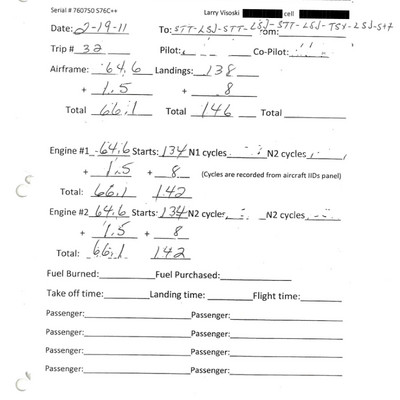 Serial # 760750 S76C++ Larry Visoski cell
Date: 2-19-11 To: STT-LSJ-STT-LSJ-STT-LSJ-TSX-LSJ-STT From:
Trip # 32 Pilot: Co-Pilot:
Airframe: 64.6 Landings: 138
+ 1.5 + 8
Total 66.1 Total 146 Total
Engine #1 64.6 Starts: 134 N1 cycles N2 cycles
+ 1.5 + 8 (Cycles are recorded from aircraft IIDs panel)
Total: 66.1 142
Engine #2 64.6 Starts: 134 N2 cycles N2 cycles
+ 1.5 + 8
Total: 66.1 142
Fuel Burned: Fuel Purchased:
Take off time: Landing time: Flight time:
Passenger: Passenger:
Passenger: Passenger:
Passenger: Passenger:
Passenger: Passenger: